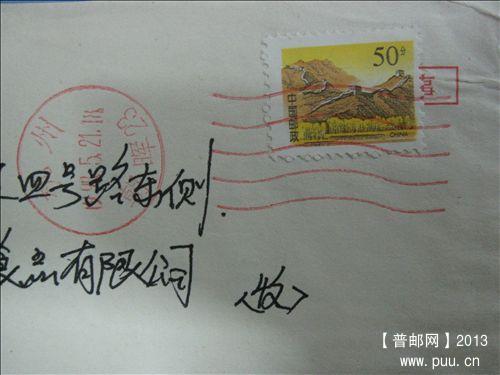 50分
中国邮政
CHINA
州
5.21.11
四号路东侧
食品有限公司
<收>
【普邮网】2013
www.puu.cn